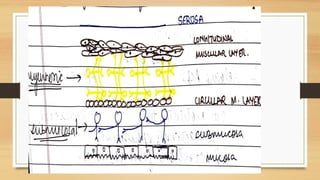 SEROSA
LONGITUDINAL
MUSCULAR LAYER.
myenteric
CIRCULAR M. LAYER
submucosal
submucosa
mucosa